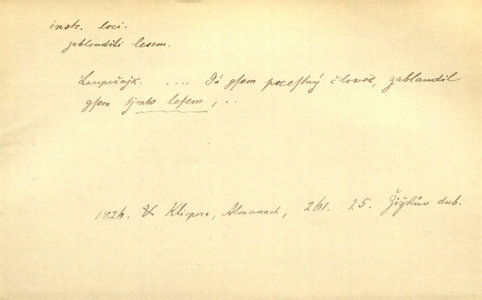 instr. loci.
zablouditi lesem.
Laupežnjk. .... Já gsem pocestný člowěk, zablaudil
gsem tjmto lesem, ..
1826. V. Klicpera, Almanach, 261. 25. Žižkův dub.